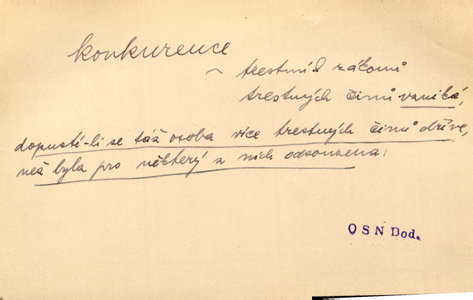 konkurence
~ trestních zákonů
trestných činů vzniká,
dopustí-li se táž osoba více trestných činů dříve,
než byla pro některý z nich odsouzena.
O S N Dod.